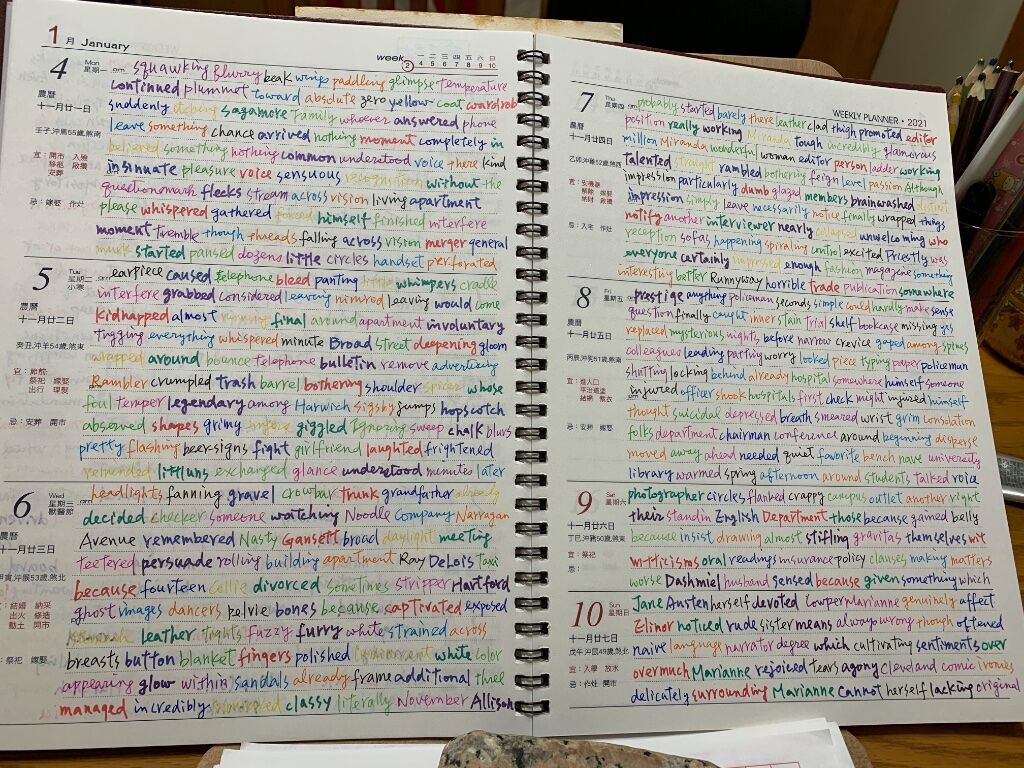 1 月 January
week 2
一 二 三 四 五 六 日
4 5 6 7 8 9 10
4 Mon 星期一 am squawking flurry beak wings paddling glimpse temperature
continued plummet toward absolute zero yellow coat wardrob
農曆 十一月廿一日
suddenly itching sagamore family whoever answered phone
壬子,沖馬55歲,煞南
leave something chance arrived nothing moment completely in
believed something nothing common understood voice there kind
insinuate pleasure voice sensuous recognition without the
questionmark flecks stream across vision living apartment
忌：嫁娶 作灶
please whispered gathered forced himself finished interfere
moment tremble though threads falling across vision merger general
murk started paused dozens little circles handset perforated
5 Tue 星期二 小寒 earpiece caused telephone bleed panting little whimpers cradle
interfere grabbed considered leaving nimrod leaving would come
農曆 十一月廿二日
kidnapped almost running final around apartment involuntary
癸丑,沖羊54歲,煞東
tugging everything whispered minute Broad Street deepening gloom
wrapped around bounce telephone bulletin remove advertizing
Rambler crumpled trash barrel bothering shoulder spicer whose
foul temper legendary among Harwich Sigsby jumps hopscotch
忌：安葬 開市
observed shapes grimy giggled Ignoring sweep chalk blurs
pretty flashing beersigns fight girlfriend laughted frightened
remanded littluns exchanged glance understood minutes later
6 Wed 星期三 獸醫節 am headlights fanning gravel crowbar trunk grandfather already
decided checker someone watching Noodle Company Narragan
農曆 十一月廿三日
Avenue remembered Nasty Gansett broad daylight meeting
teetered persuade rolling building apartment Ray DeLois Taxi
甲寅,沖猴53歲,煞北
because fourteen Collie divorced Sometimes stripper Hartford
ghost images dancers pelvic bones because captivated exposed
leather tights fuzzy furry white strained across
祭祀 嫁娶
breasts button blanket fingers polished iridescent white color
appearing glow within sandals already frame additional thee
managed incredibly classy literally November Allison
7 Thu 星期四 am probably started barely there leather clad thigh promoted editor
WEEKLY PLANNER • 2021
position really working Miranda tough incredibly glamorous
農曆 十一月廿四日
million Miranda wonderful woman editor person ladder working
乙卯,沖雞52歲,煞西
talented straight rambled bothering feign level passion Although
impression particularly dumb glazed members brainwashed distinct
impression simply leave necessarily notice finally wrapped things
notify another interviewer nearly collapsed unwelcoming who
忌：入宅 作灶
reception sofas happening spiraling control excited Priestly was
everyone certainly impressed enough fashion magazine something
interesting better Runnyway horrible trade publication somewhere
8 Fri 星期五 am prestige anything policeman seconds simple could hardly make sense
question finally caught inner stain Trial shelf bookcase missing yes
農曆 十一月廿五日
replaced mysterious nights before narrow crevice gaped among spines
丙辰,沖狗51歲,煞南
colleagues leading parting worry looked piece typing paper policeman
shutting locking behind already hospital somewhere himself someone
injured officer shook hospitals first check might injured himself
thought suicidal depressed breath smeared wrist grim consolation
忌：安葬 嫁娶
folks department chairman conference around beginning disperse
moved away ahead needed quiet favorite bench nave university
library warmed spring afternoon around students talked voice
9 Sat 星期六 photographer circles flanked crappy campus outlet another right
十一月廿六日
their standin English Department those because gained belly
丁巳,沖豬50歲,煞東
because insist drawing almost stifling gravitas themselves wit
宜：祭祀
witticisms oral readings insurance policy clauses making matters
忌：
worse Dashmiel husband sensed because given something which
10 Sun 星期日 Jane Austen herself devoted Cowper Marianne genuinely affect
Elinor noticed rude sister means always wrong though oftened
十一月廿七日
戊午,沖鼠49歲,煞北
naive language narrator degree which cultivating sentiments over
宜：入學 放水
overmuch Marianne rejoiced tears agony Cleveland comic ironies
忌：作灶 開市
delicately surrounding Marianne cannot herself lacking original